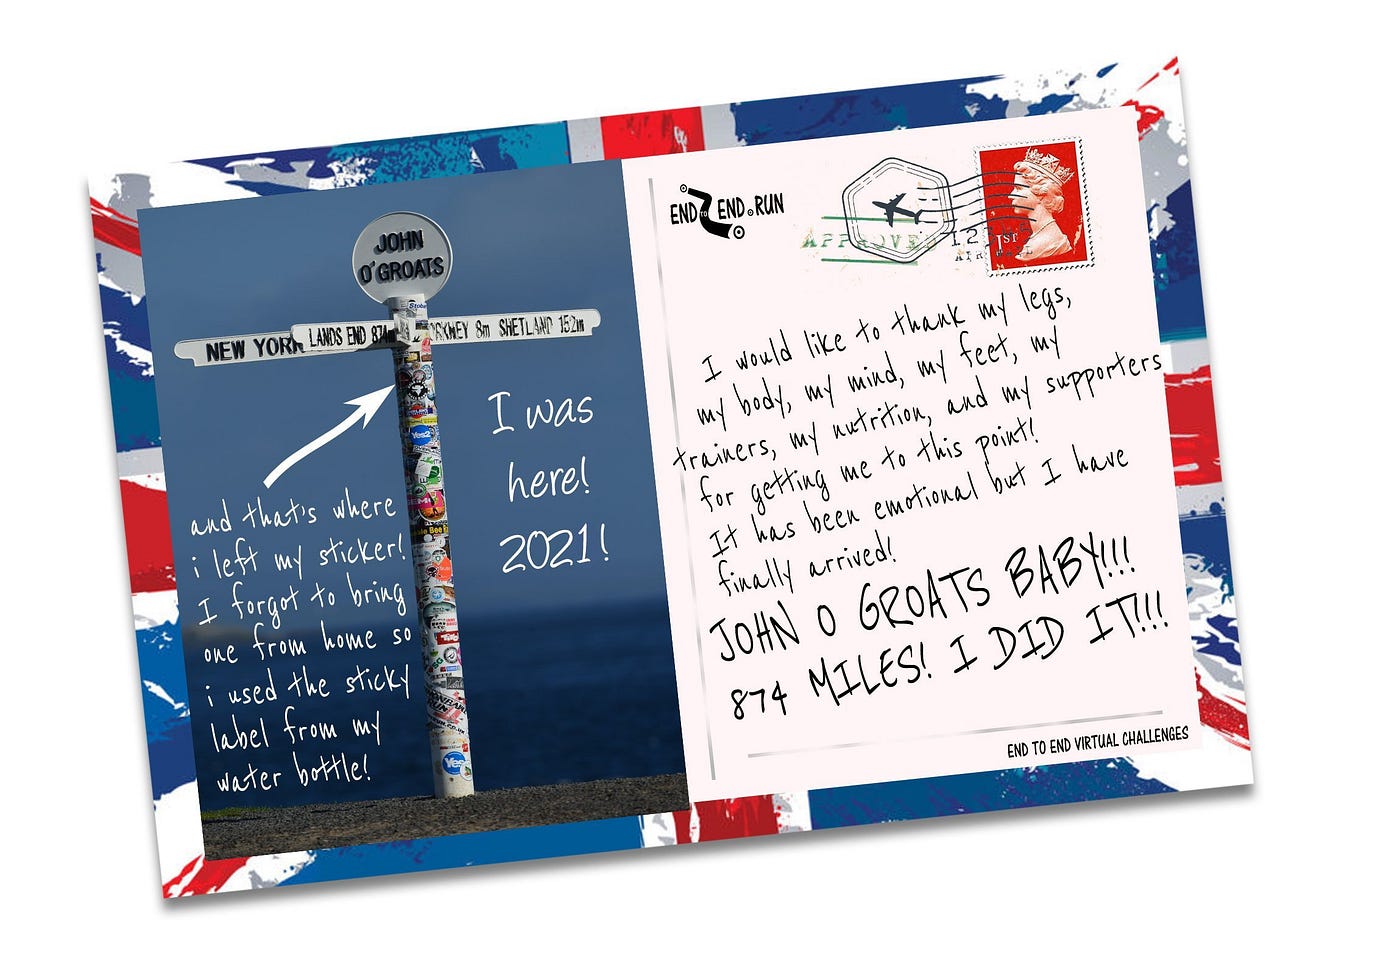 JOHN
O'GROATS
NEW YORK
LANDS END 874m
ORKNEY 8m SHETLAND 152m
I was
here!
2021!
and that's where
i left my sticker!
I forgot to bring
one from home so
i used the sticky
label from my
water bottle!
Yes2
Yes
END TO END.RUN
APPROVED
1ST
I would like to thank my legs,
my body, my mind, my feet, my
trainers, my nutrition, and my supporters
for getting me to this point!
It has been emotional but I have
finally arrived!
JOHN O GROATS BABY!!!
874 MILES! I DID IT!!!
END TO END VIRTUAL CHALLENGES